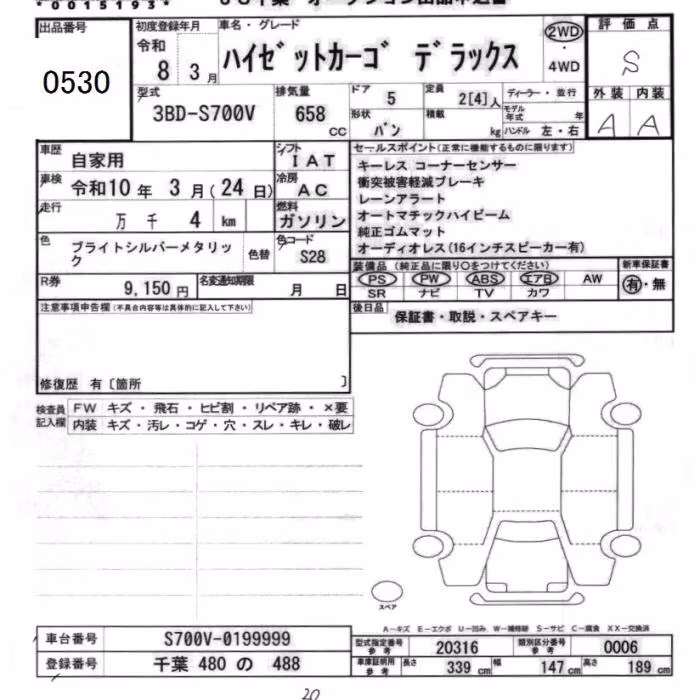 *00151934*
出品番号
0530
初度登録年月
令和
8 3月
車名・グレード
ハイゼットカーゴ デラックス
2WD
・
4WD
評価点
S
外装 内装
A A
型式
3BD-S700V
排気量
658
cc
ドア
5
定員
2[4]人
ディーラー・並行
形状
バン
積載
kg
モデル年式 年
ハンドル 左・右
車歴
自家用
シフト
IAT
車検
令和10年 3月(24日)
冷房
AC
走行
万 千 4 km
燃料
ガソリン
色
ブライトシルバーメタリッ
ク
色替
色コード
S28
R券
9,150円
名変通知期限
月 日
セールスポイント(正常に機能するものに限ります)
キーレス コーナーセンサー
衝突被害軽減ブレーキ
レーンアラート
オートマチックハイビーム
純正ゴムマット
オーディオレス(16インチスピーカー有)
装備品 (純正品に限り○をつけてください)
PS PW ABS エアB AW
SR ナビ TV カワ
新車保証書
有・無
後日品
保証書・取説・スペアキー
注意事項申告欄(不具合内容等は具体的に記入して下さい)
修復歴 有〔箇所 〕
検査員
記入欄
FW キズ・飛石・ヒビ割・リペア跡・×要
内装 キズ・汚レ・コゲ・穴・スレ・キレ・破レ
スペア
A-キズ E-エクボ U-凹み W-補修跡 S-サビ C-腐食 XX-交換済
車台番号
S700V-0199999
登録番号
千葉 480 の 488
型式指定番号
参考
20316
類別区分番号
参考
0006
車庫証明用
参考
長さ
339 cm
幅
147 cm
高さ
189 cm
20